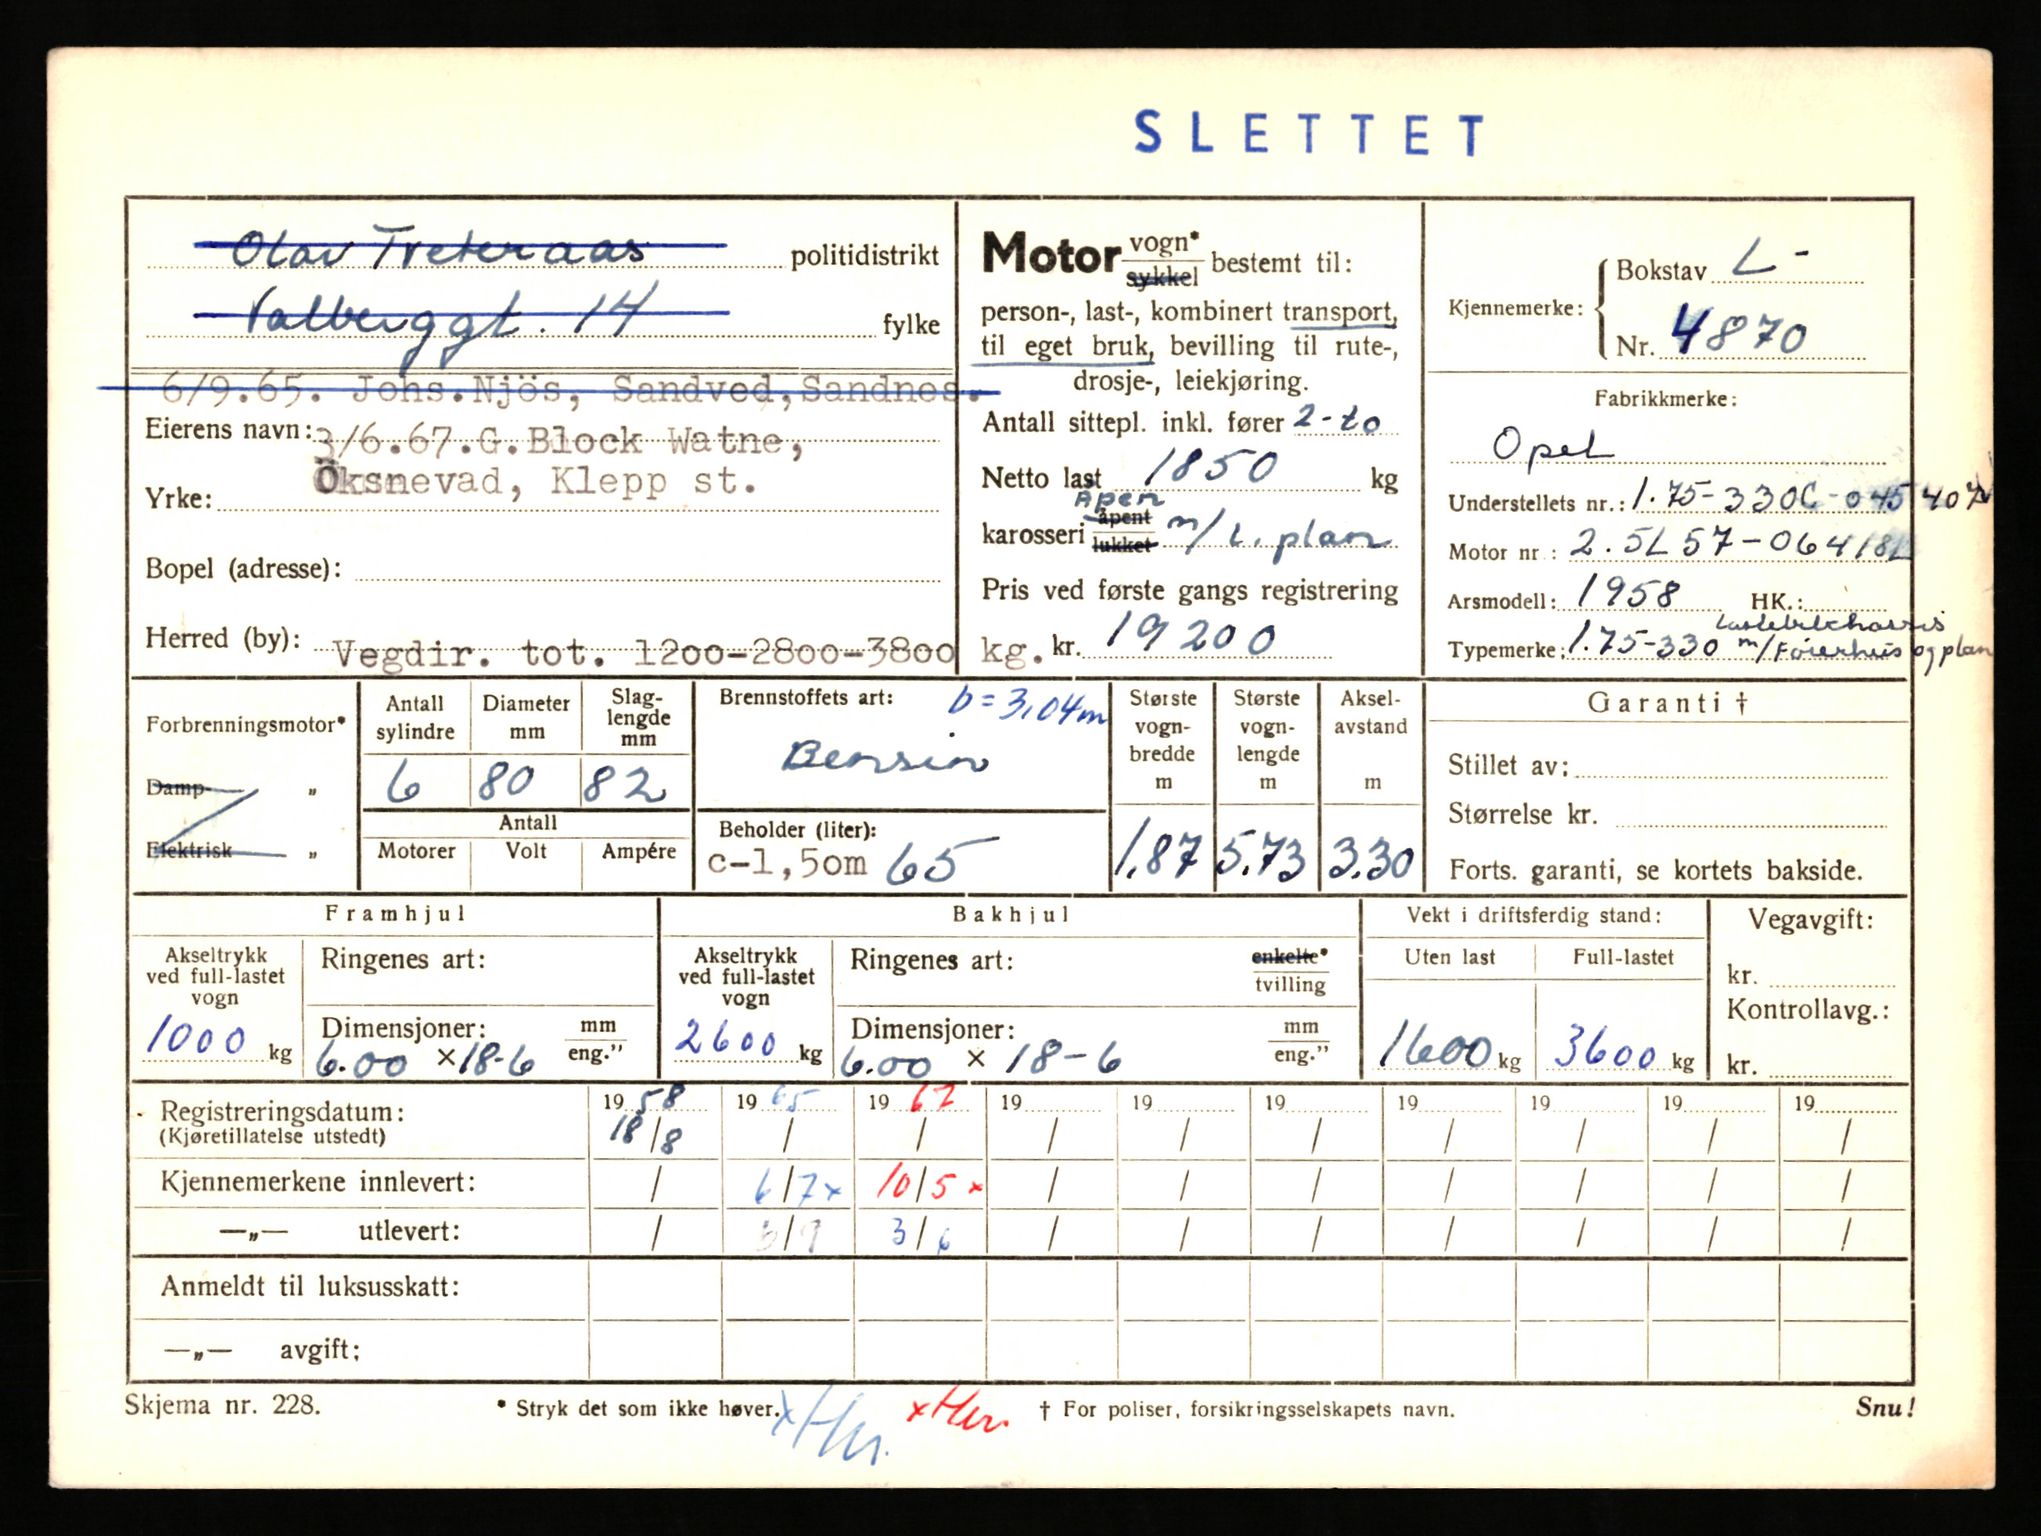 SLETTET
Olav Treteraas politidistrikt
Valberggt. 14 fylke
6/9.65. Johs.Njös, Sandved, Sandnes.
Eierens navn: 3/6.67.G.Block Watne,
Öksnevad, Klepp st.
Yrke:
Bopel (adresse):
Herred (by): Vegdir. tot. 1200-2800-3800 kg.
Motor vogn* sykkel bestemt til:
person-, last-, kombinert transport,
til eget bruk, bevilling til rute-,
drosje-, leiekjøring.
Antall sittepl. inkl. fører 2-to
Netto last 1850 kg
Åpen
karosseri åpent lukket m/L.plan
Pris ved første gangs registrering
kr. 19200
Kjennemerke: Bokstav L-
Nr. 4870
Fabrikkmerke:
Opel
Understellets nr.: 1.75-330C-045407
Motor nr.: 2.5L57-064181
Arsmodell: 1958 HK.:
Typemerke: 1.75-330 m/Førerhus og plan
Forbrenningsmotor*
Damp- „
Elektrisk „
Antall sylindre
Diameter mm
Slag-lengde mm
6 80 82
Antall
Motorer Volt Ampére
Brennstoffets art: b=3,04m
Bensin
Beholder (liter):
c-1,50m 65
Største vogn-bredde m
1.87
Største vogn-lengde m
5.73
Aksel-avstand m
3.30
Garanti †
Stillet av:
Størrelse kr.
Forts. garanti, se kortets bakside.
Framhjul
Akseltrykk ved full-lastet vogn
1000 kg
Ringenes art:
Dimensjoner: mm eng."
6.00 ×18-6
Bakhjul
Akseltrykk ved full-lastet vogn
2600 kg
Ringenes art: enkelte* tvilling
Dimensjoner: mm eng."
6.00 × 18-6
Vekt i driftsferdig stand:
Uten last Full-lastet
1600 kg 3600 kg
Vegavgift:
kr.
Kontrollavg.:
kr.
Registreringsdatum: 1958 1965 1967 19 19 19 19 19 19 19
(Kjøretillatelse utstedt) 18/8 / / / / / / / / /
Kjennemerkene innlevert: / 6/7× 10/5× / / / / / / /
—„— utlevert: / /9 3/6 / / / / / / /
Anmeldt til luksusskatt:
—„— avgift:
Skjema nr. 228.
* Stryk det som ikke høver.
† For poliser, forsikringsselskapets navn.
Snu!